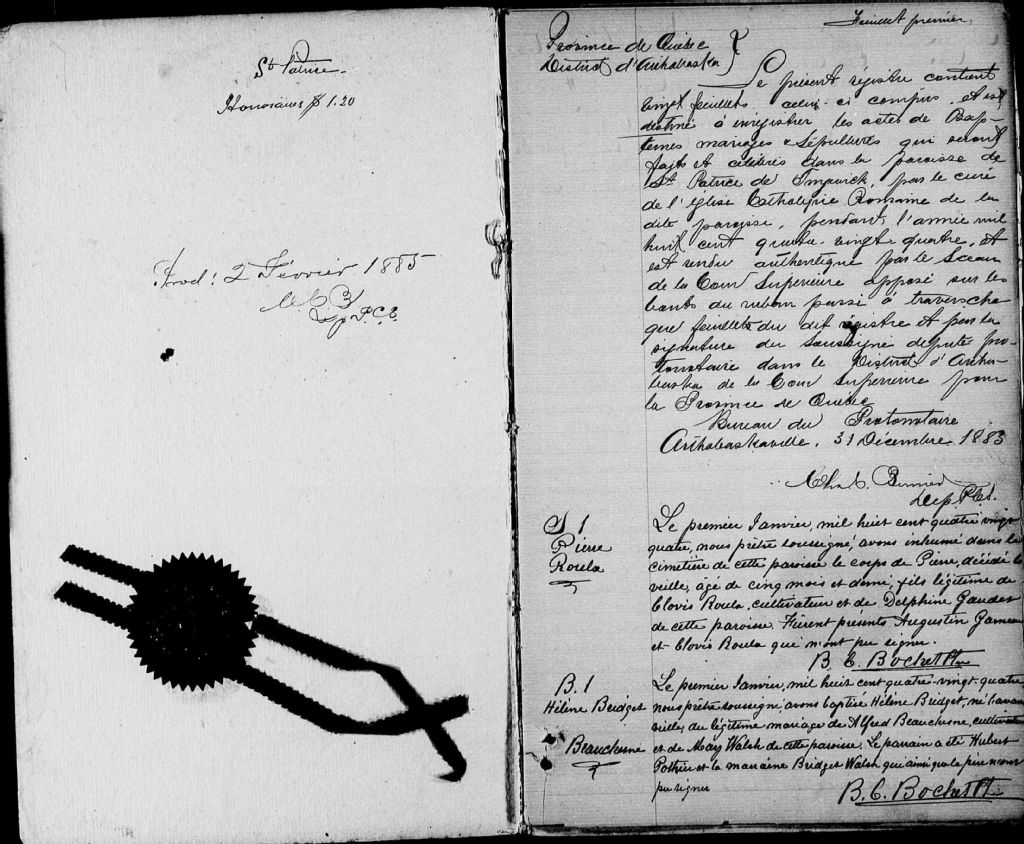 St Patrice
Honoraires $1.20
Prod: 2 Février 1885
Dep P.C.S.
Feuillet premier
Province de Québec
District d'Arthabaska
Le présent régistre contient
vingt feuillets celui-ci compris et est
destiné à enregistrer les actes de Bap-
têmes mariages & Sépultures qui seront
faits et célébrés dans la paroisse de
St Patrice de Tingwick, par le curé
de l'église Catholique Romaine de la
dite paroisse, pendant l'année mil
huit cent quatre-vingt-quatre, et
est rendu authentique par le Sceau
de la Cour Supérieure apposé sur les
bouts du ruban passé à travers cha
que feuillets du dit régistre et par la
signature du Soussigné député pro-
tonotaire dans le District d'Artha-
baska de la Cour Supérieure pour
la Province de Québec
Bureau du Protonotaire
Arthabaskaville, 31 Décembre 1883
Chs C. Bernier
Dep P.C.S.
S 1
Pierre
Roula
Le premier Janvier, mil huit cent quatre vingt
quatre, nous prêtre soussigné, avons inhumé dans le
cimetière de cette paroisse le corps de Pierre, décédé la
veille, âgé de cinq mois et demi, fils légitime de
Clovis Roula, cultivateur et de Delphine Gaudet
de cette paroisse. Furent présents Augustin Garneau
et Clovis Roula qui n'ont pu signer.
B. C. Bochet Ptre
B. 1
Hélène Bridget
Beauchesne
Le premier Janvier, mil huit cent quatre-vingt-quatre
nous prêtre soussigné, avons baptisé Hélène Bridget, née l'avant
veille, du légitime mariage de Alfred Beauchesne, cultivateur
et de Mary Walsh de cette paroisse. Le parrain a été Hubert
Pothier et la marraine Bridget Walsh qui ainsi que le père n'ont
pu signer
B. C. Bochet Ptre